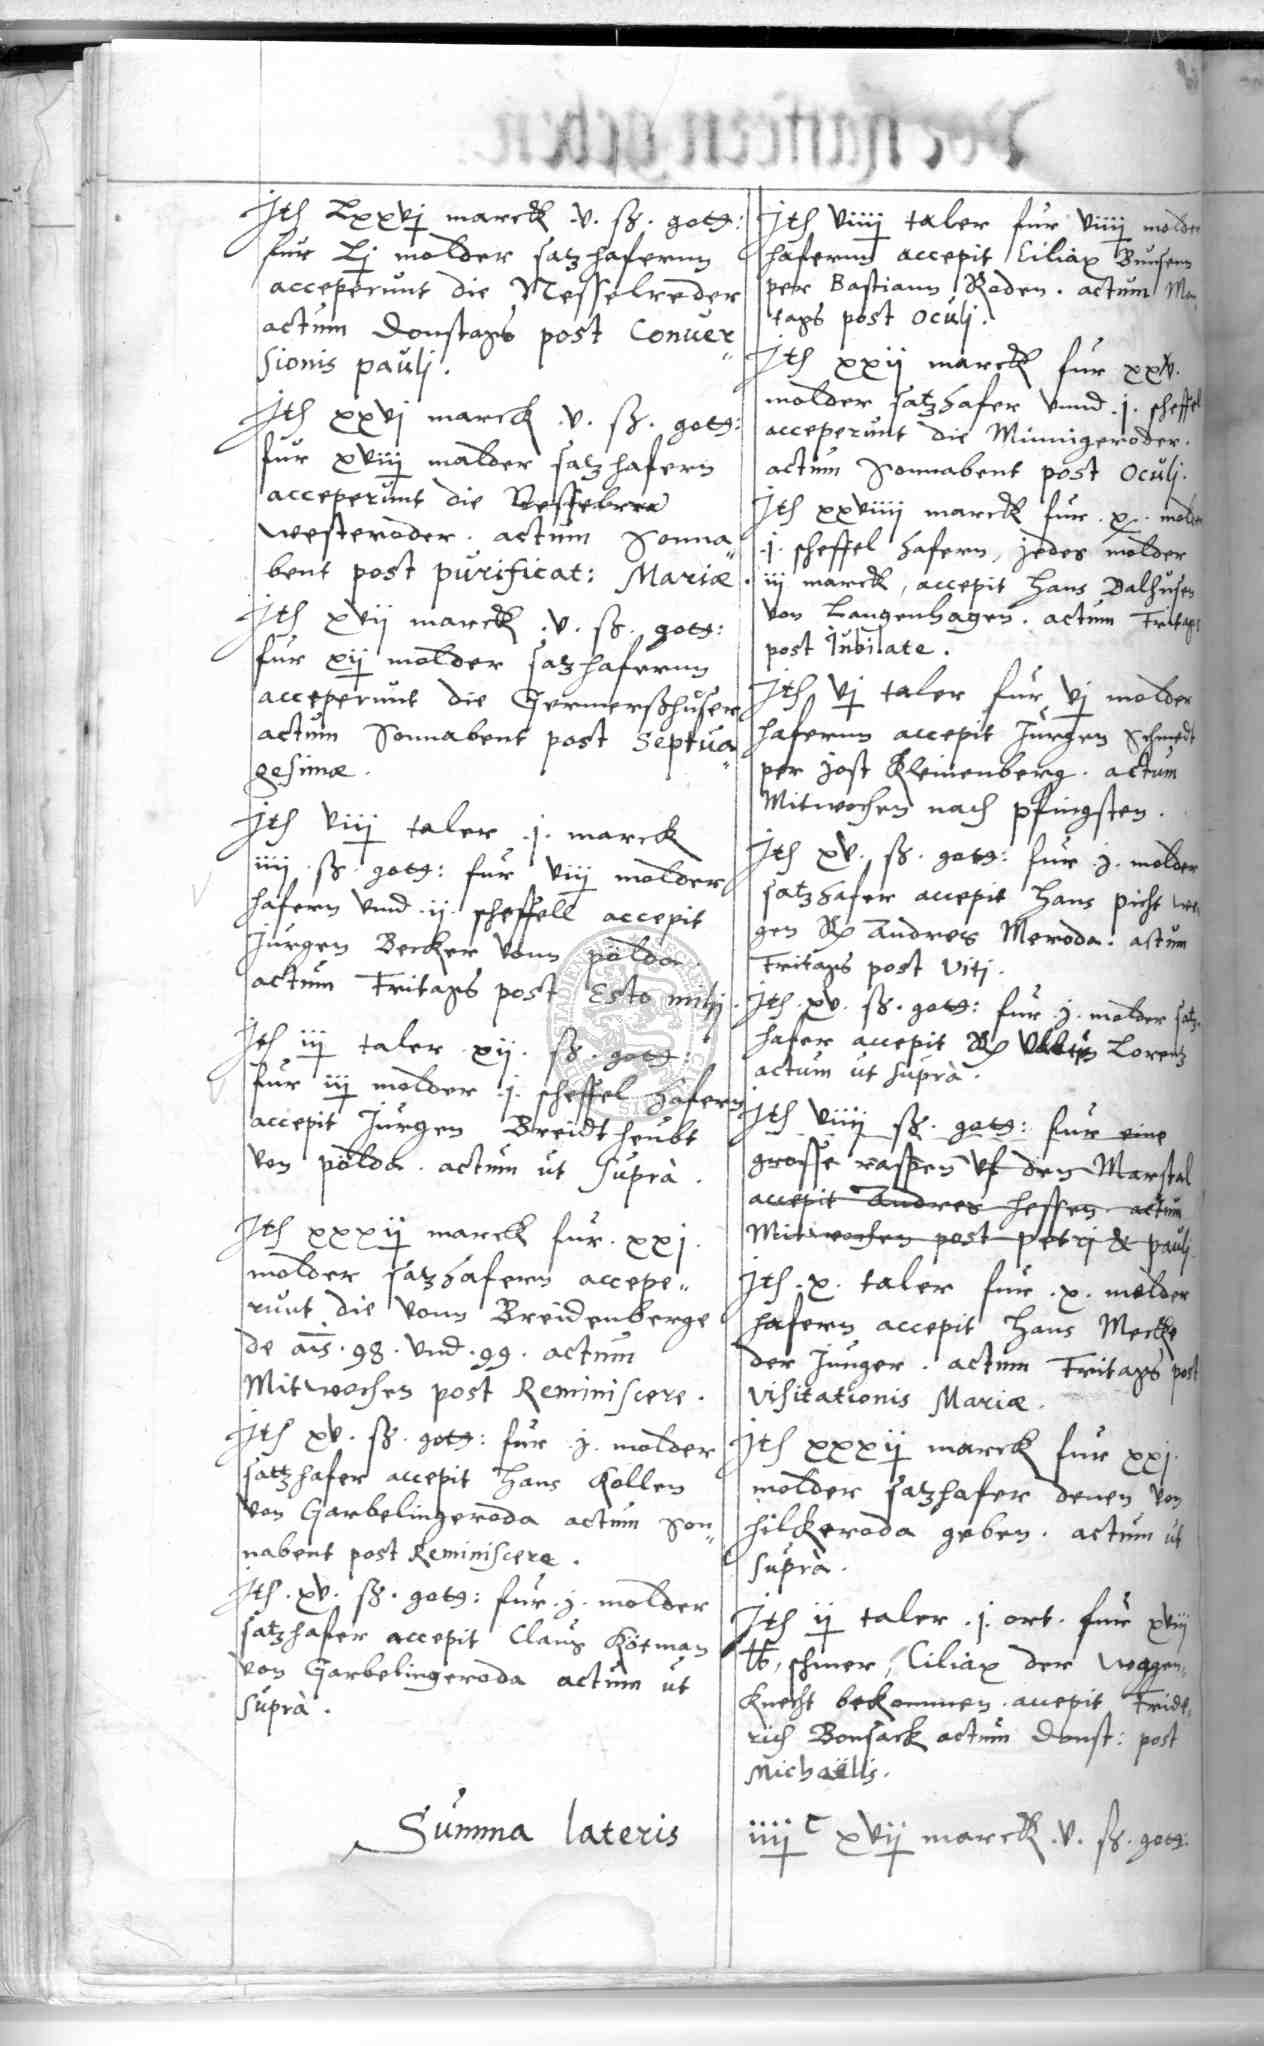 Jtē Lxxvj marck .v. ß. gotg:
fur Lj molder satzhafernn
acceperunt die Nesselreder
actum Donstags post Conuer„
sionis paulj.
Jtē xxvj marck .v. ß. gotg:
fur xviij malder satzhafern
acceperunt die
westeroder. actum Sonna„
bent post purificat: Mariæ.
Jtē xvij marck .v. ß. gotg:
fur xij molder satzhafernn
acceperunt die Germerßhuser
actum Sonnabent post Septua„
gesimæ.
Jtē viij taler .j. marck
iiij ß. gotg: fur viij molder
hafern vnnd .ij. scheffell accepit
Jurgen Becker vonn pölda.
actum Fritags post Esto mihj.
Jtē iij taler xij. ß. gotg:
fur iij molder .j. scheffel hafern
accepit Jurgen Breidtheubt
von pölda. actum ut suprà.
Jtē xxxij marck fur. xxj.
molder satzhafern accepe„
runt die vonn Breidenberge
de ais. 98. vnd. 99. actum
Mitwochen post Reminiscere.
Jtē xv. ß. gotg: fur .j. molder
satzhafer accepit Hans Kollen
von Garbelingeroda actum Son„
nabent post Reminiscere.
Jtē. xv. ß. gotg: fur .j. molder
satzhafer accepit Claus Kötman
von Garbelingeroda actum ut
suprà.
Summa lateris
Jtē viiij taler fur viiij molder
hafernn accepit Ciliax Bunsenn
per Bastiann Roden. actum Mon
tags post Oculj.
Jtē xxij marck fur xxv.
molder satzhafer vnnd .j. scheffel
acceperunt die Minnigeroder.
actum Sonnabent post Oculj.
Jtē xxviiij marck fur .x. molder
.j. scheffel hafern, jedes molder
iij marck, accepit Hans Dalhusen
von Langenhagen. actum Fritags
post Jubilate.
Jtē vj taler fur vj molder
hafernn accepit Jurgen Schmedt
per Jost Kleinenberg. actum
Mitwochen nach pfingsten.
Jtē xv. ß. gotg: fur .j. molder
satzhafer accepit Hans picht we
gen Andres Meroda. actum
Fritags post Vitj.
Jtē. xv. ß. gotg: fur .j. molder satz„
hafer accepit Lorentz
actum ut suprà.
Jtē viiij ß. gotg: fur eine
grosse raspen vf den Marstal
accepit Andres Hessen actum
Mitwochen post petrj & paulj.
Jtē .x. taler fur .x. molder
hafern accepit Hans Mecke
der Junger. actum Fritags post
Visitationis Mariæ.
Jtē xxxij marck fur xxj.
molder satzhafer denen von
Hilkeroda geben. actum ut
suprà.
Jtē ij taler .j. ort. fur xviij
℔, schmer, Ciliax der waggen„
knecht bekommen. accepit Fride„
rich Bonsack actum Donst: post
Michaëlis.
iiij C xvij marck .v. ß. gotg: